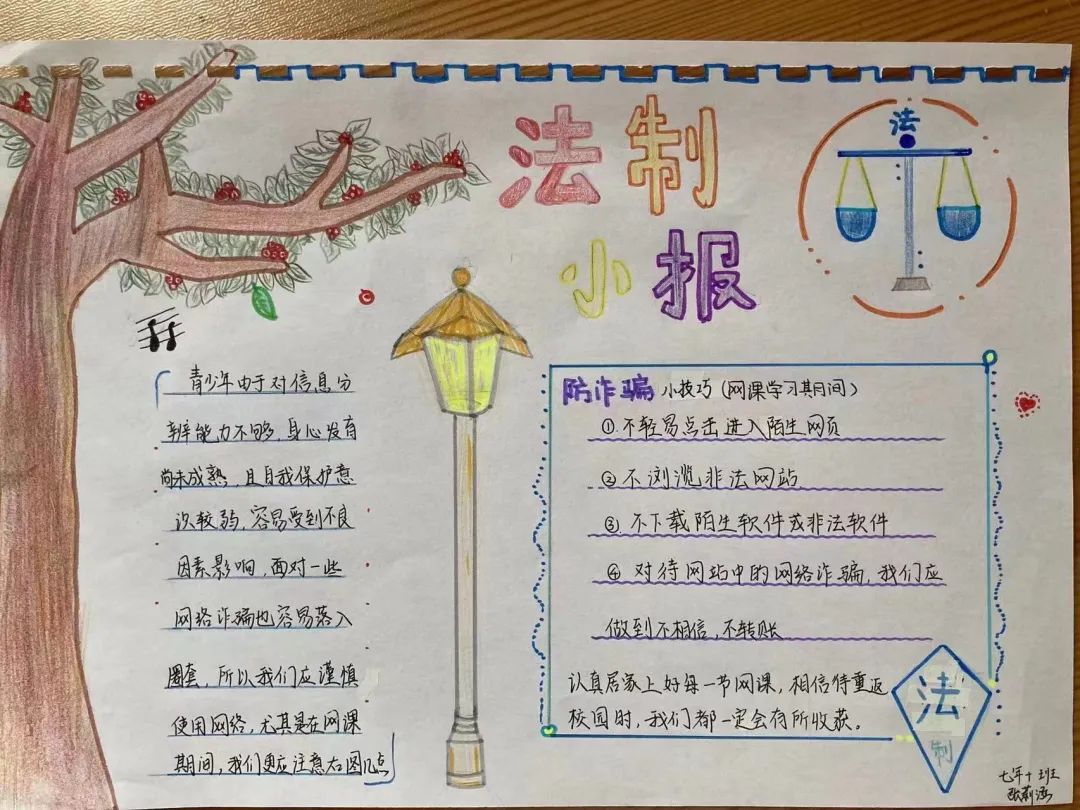 法制
小报
法
青少年由于对信息分
辛辛能力不够,身心发育
尚未成熟,且自我保护意
识较弱,容易受到不良
因素影响,面对一些
网络诈骗也容易落入
圈套,所以我们应谨慎
使用网络,尤其是在网课
期间,我们更应注意右图几点
防诈骗小技巧(网课学习其月间)
①不轻易点击进入陌生网页
②不浏览非法网站
③不下载陌生软件或非法软件
④对待网站中的网络诈骗,我们应
做到不相信,不转账
认真居家上好每一节网课,相信待重返
校园时,我们都一定会有所收获。
法
制
七年十班